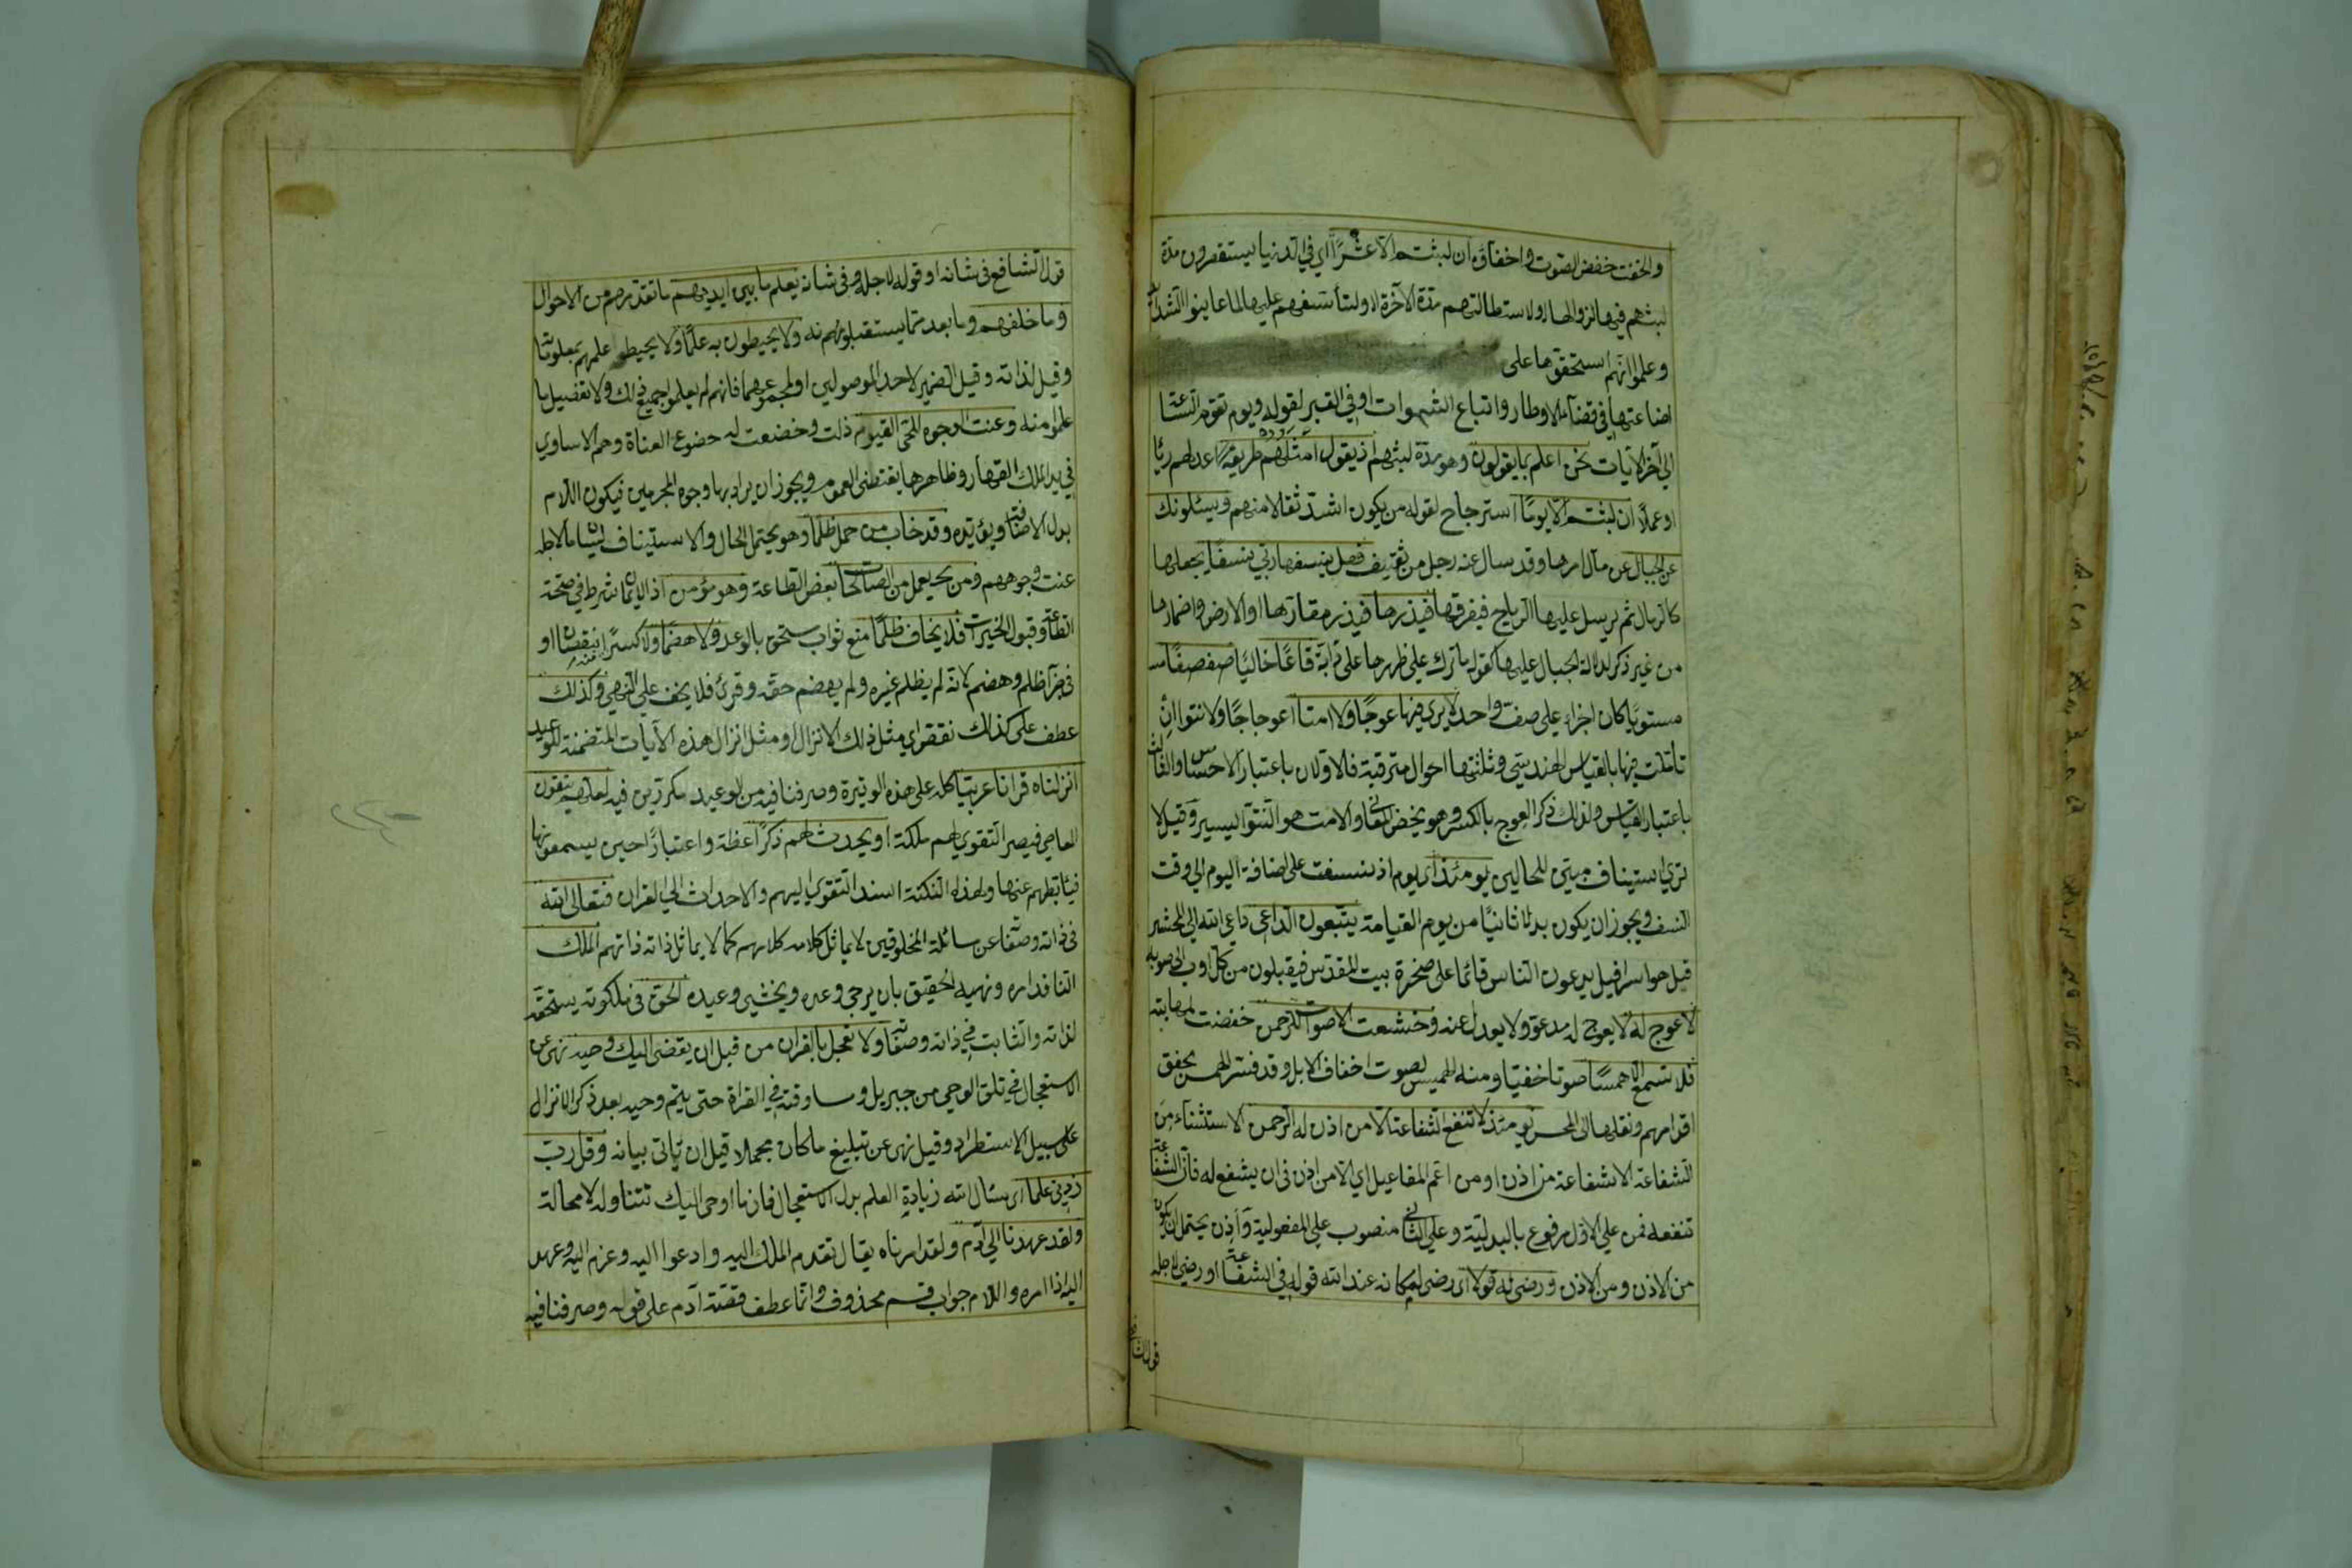 والخفت خفض الصوت واخفاؤه ان لبثتم الا عشرًا اي في الدنيا يستقصرون مدة
لبثهم فيها لزوالها او لاستطالتهم مدة الآخرة او لتأسفهم عليها لما عاينوا الشدائد
وعلموا انهم استحقوها على
اضاعتها في قضاء الاوطار واتباع الشهوات او في القبر لقوله ويوم تقوم الساعة
الي آخر الآيات نحن اعلم بما يقولون وهو مدة لبثهم اذ يقول امثلهم طريقة اعدلهم رئا
او عملًا ان لبثتم الا يومًا استرجاح لقوله من يكون اشدّ ثقالا منهم ويسئلونك
عن الجبال عن مآل امرها وقد سال عنه رجل من ثقيف فقل ينسفها ربي نسفًا يجعلها
كالرمال ثم يرسل عليها الرياح فيفرقها فيذرها فيذر مقارّها او الارض واضمارها
من غير ذكر لدلالة الجبال عليها كقوله ما ترك علي ظهرها من دابّة قاعًا خاليًا صفصفًا
مستويًا كان اجزاء علي صف واحد لا يري فيها عوجًا ولا امتا اعوجاجًا ولا نتوا ان
تأملت فيها بالقياس الهندسي وثلثتها احوال مترقبة فالاولان باعتبار الاحساس والثالث
باعتبار القياس ولذلك ذكر العوج بالكسر وهو يخص المعاني والامت هو النتو اليسير وقيل لا
تري استيناف مبين للحالين يومئذ اي يوم اذ نسفت على اضافة اليوم الي وقت
النسف ويجوز ان يكون بدلا ثانيًا من يوم القيامة يتبعون الداعي داعي الله الي المحشر
قيل هو اسرافيل يدعون الناس قائما على صخرة بيت المقدس فيقبلون من كل اوب الى صوبه
لا عوج له لا يعوج له مدعو ولا يعدل عنه وخشعت الاصوات للرحمن خفضت لمهابته
فلا تسمع الا همسًا صوتا خفيّا ومنه الهميس لصوت اخفاف الابل وقد فسر الهمس بخفق
اقدامهم ونقلها الى المحشر يومئذ لا تنفع الشفاعة الا من اذن له الرحمن الاستثناء من
الشفاعة الا شفاعة من اذن او من اعم المفاعيل اي الا من اذن في ان يشفع له فان الشفاعة
تنفعه فمن علي الاول مرفوع بالبدلية وعلي الثاني منصوب علي المفعولية وأذن يحتمل ان يكون
من الاذن ومن الاذن ورضي له قولا اي رضي لمكانه عند الله قوله في الشفاعة او رضي لاجله
قول الشافع
قول الشافع في شانه او قوله لاجله وفي شانه يعلم ما بين ايديهم ما تقدّمهم من الاحوال
وما خلفهم وما بعدهم مما يستقبلونه ولا يحيطون به علمًا ولا يحيط علمهم بمعلوماته
وقيل لذاته وقيل الضمير لاحد الموصولين او لمجموعهما فانهم لم يعلموا جميع ذلك ولا تفصيل ما
علموا منه وعنت الوجوه للحيّ القيوم ذلت وخضعت له خضوع العناة وهم الاساري
في يد الملك القهار وظاهرها يقتضى العموم ويجوز ان يراد بها وجوه المجرمين فيكون اللام
بدل الاضافة ويؤيّده وقد خاب من حمل ظلمًا وهو يحتمل الحال والاستيناف لبيان ما لاجله
عنت وجوههم ومن يعمل من الصالحات بعض الطاعة وهو مؤمن اذ الايمان شرط في صحة
الطاعات وقبول الخيرات فلا يخاف ظلمًا منع ثواب ستحق بالوعد ولا هضمًا ولا كسرًا منه بنقصان او
في جزآ ظلم وهضم لانه لم يظلم غيره ولم يهضم حقه وقرئ فلا يخف علي النهي وكذلك
عطف على كذلك نقص اي مثل ذلك الانزال او مثل انزال هذه الآيات المتضمنة للوعيد
انزلناه قرانا عربيّا كله على هذه الوتيرة وصرفنا فيه من الوعيد مكررين فيه لعلهم يتقون
المعاصي فيصير التقوي لهم ملكة او يحدث لهم ذكرًا عظة واعتبارًا حين يسمعونها
فيثبطهم عنها ولهذه النكتة اسند التقوي اليهم والاحداث الي القران فتعالى الله
في ذاته وصفاته عن مماثلة المخلوقين لا يماثل كلامه كلامهم كما لا يماثل ذاته ذاتهم الملك
النافذ امره ونهيه الحقيق بان يرجى وعده ويخشي وعيده الحق في ملكوته يستحقه
لذاته والثابت في ذاته وصفاته ولا تعجل بالقران من قبل ان يقضى اليك وحيه نهي عن
الاستعجال في تلقي الوحي من جبريل ومساوقته في القراة حتى يتم وحيه بعد ذكر الانزال
على سبيل الاستطراد وقيل نهي عن تبليغ ما كان مجملا قبل ان يأتى بيانه وقل رب
زدني علمًا اي سئال الله زيادة العلم بدل الاستعجال فان ما اوحي اليك تتناوله لا محالة
ولقد عهدنا الي آدم ولقد امرناه يقال تقدم الملك اليه وادعوا اليه وعزم اليه وعهد
اليه اذا امره واللام جواب قسم محذوف وانما عطف قصة آدم على قوله وصرفنا فيه